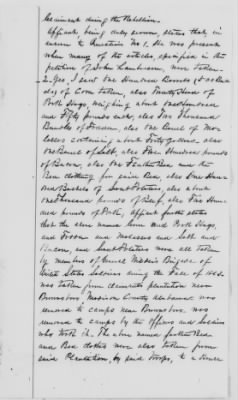 Government during the Rebellion.
Affiant, being duly sworn, states that in
answer to Question No. 1. He was present
when many of the articles, specified in the
petition of John were taken.
2. Yes, I saw one Hundred
of Corn taken, also Head of
Pork Hogs, weighing about one hundred
and Fifty pounds each, also Two Thousand
Bundles of Fodder, also one Barrel of Mo-
lasses containing about Forty gallons, also
one Barrel of Salt, also Five Hundred pounds
of Bacon, also one Feather Bed and the
Bed clothing for said Bed, also One Hun-
dred Bushels of Sweet Potatoes, also about
one Thousand pounds of Beef, also Five Hun-
dred pounds of Pork, Affiant further states
that the above named Corn and Pork Hogs,
and Fodder and Molasses and Salt and
Bacon, and Sweet Potatoes were all taken
by members of General Brigade of
United States Soldiers during the Fall of 1863.
was taken from claimants plantation near
Brownsboro, Madison County Alabama was
removed to camps near Brownsboro, was
removed to camps by the Officers and Soldiers
who took it. The above named feather Bed
and Bed clothes were also taken from
said Plantation, by said Troops, to a